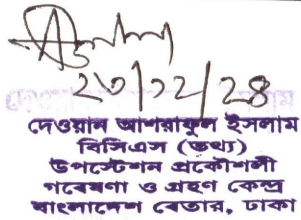 ২৩/১২/২৪
দেওয়ান আশরাফুল ইসলাম
বিসিএস (তথ্য)
উপস্টেশন প্রকৌশলী
গবেষণা ও গ্রহণ কেন্দ্র
বাংলাদেশ বেতার, ঢাকা